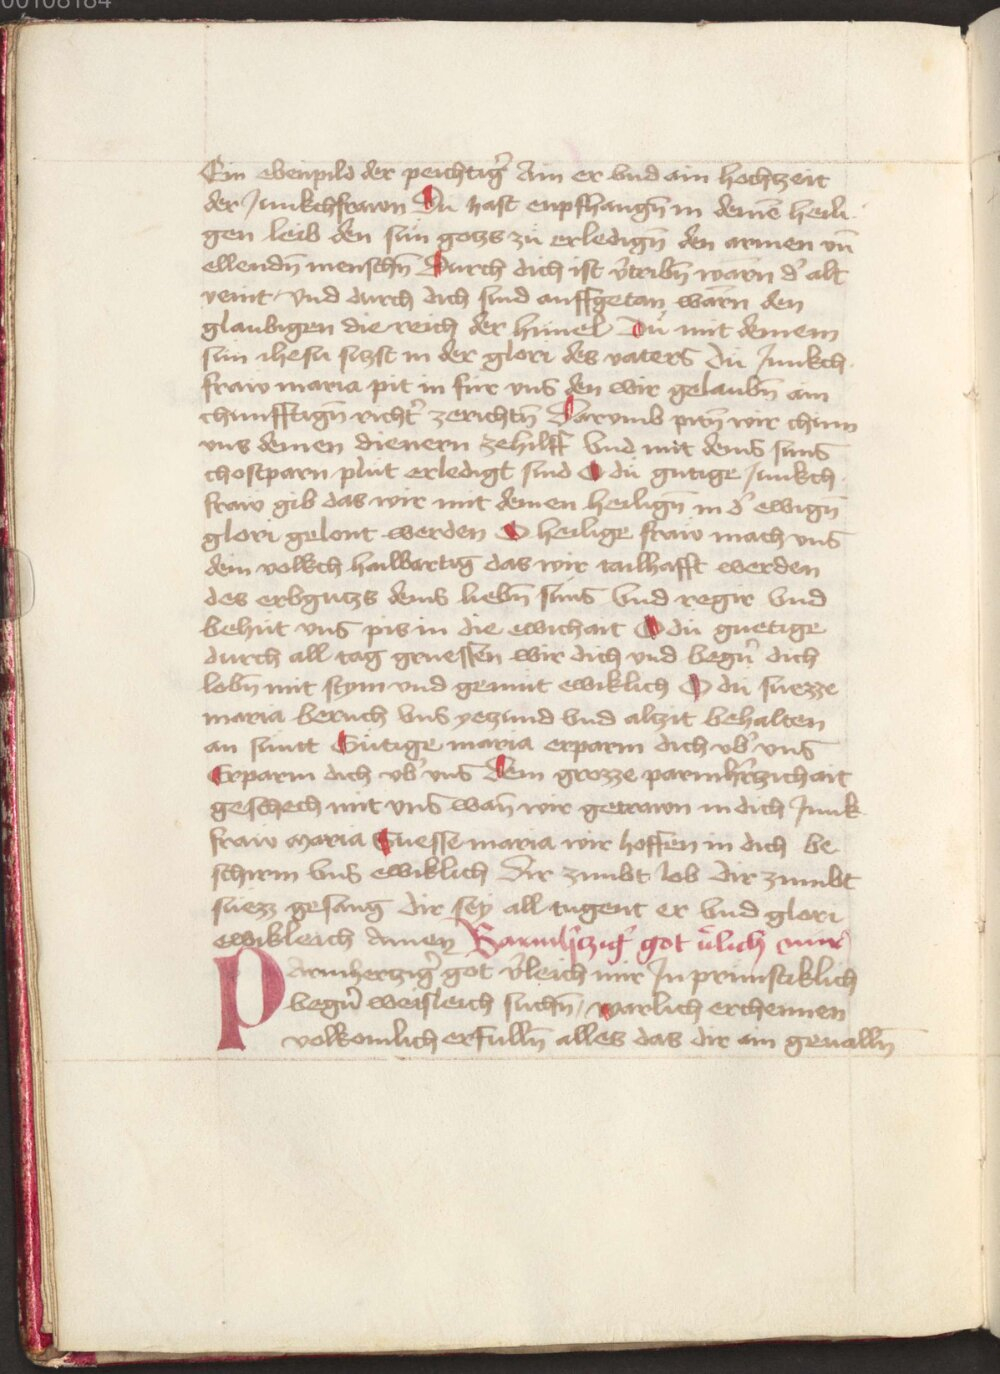 00108184
Ein ebenpild der peichtig̃ Ain er vnd ain hochtzeit
der Junkchfrawn Dů hast enpfhangn̄ in deinē heili-
gen leib den sün gotzs zů erledign̄ den armen vn̄
ellendn̄ menschn̄ Durch dich ist v̾tribn̄ warn̄ d̾ alt
veint / vnd durch dich sind auffgetan warn̄ den
glaubigen die reich der himel Dů mit deinem
sün ihesu sizst in der glori des vaters Dů Junkch-
fraw maria pit in für vns den wir gelaubn̄ ain
chunfftign̄ richt̾ zerichtn̄ Darumb pitn̄ wir chum
vns deinen dienern zehilff Vnd mit deins suns
chostparn plůt erledigt sind O dů gutige Junkch-
fraw gib das wir mit deinen heilign̄ in d̾ ewign̄
glori gelont werden O heilige fraw mach vns
dein volkch hailbartig das wir tailhafft werden
des erbgutzs deins liebn̄ suns Vnd regir Vnd
behüt vns pis in die ewichait O dů guetige
durch all tag gruessen wir dich vnd begn̾ dich
lobn̄ mit stym vnd gemüt ewiklich O dů suezze
maria beruch vns yezund vnd altzit behalten
an sunt Gütige maria erparm dich vb̾ vns
Erparm dich vb̾ vns Dein grozze parmh̾tzichait
geschech mit vns wan̄ wir getrawn in dich Junk-
fraw Maria Suesse maria wir hoffen in dich be
schirm vns ewiklich Dir zimbt lob dir zimbt
süezz gesang dir sey all tugent er vnd glori
ewikleich Amen Barmh̾tzig̾ got v̾lich mir
Parmhertzig̾ got v̾leich mir In prinnstiklich
begn̾ weisleich suchn̄ / warlich erchennen
volkomlich erfulln̄ alles das dir ain geualln̄